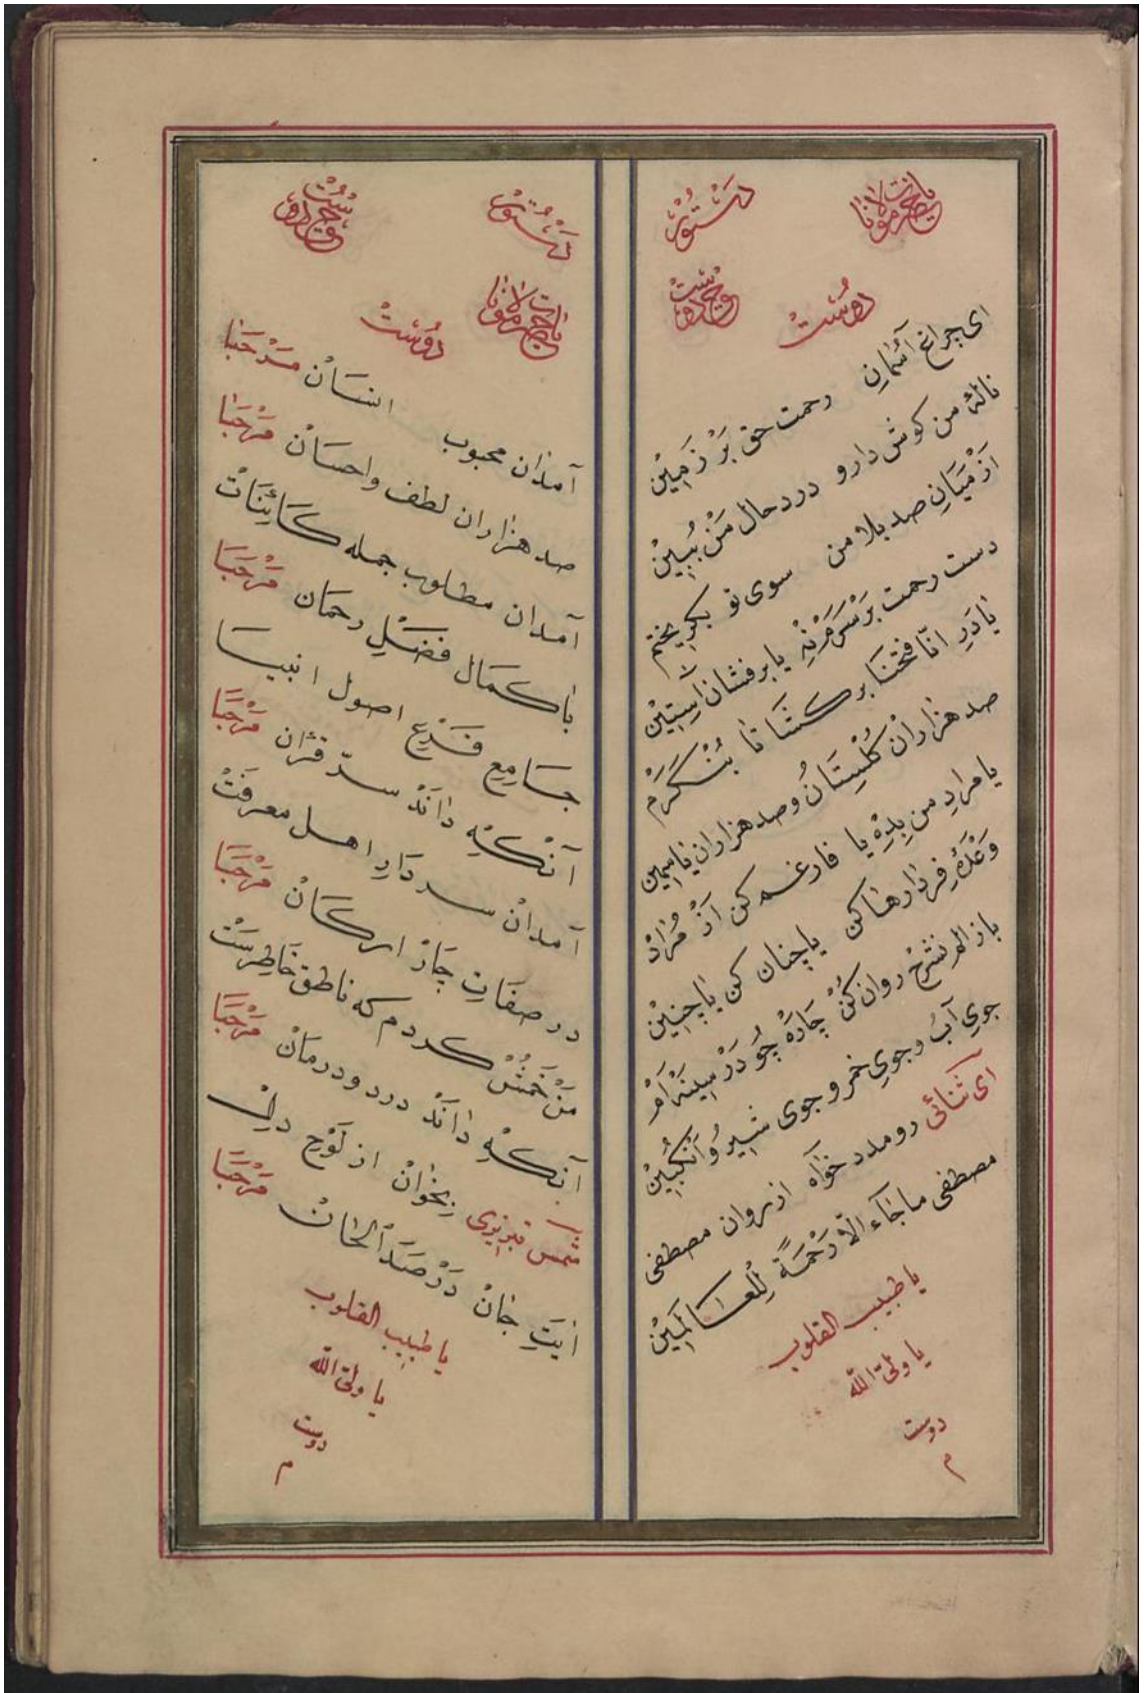 یا حضرت مولانا
دستور
دوست
ای چراغ آسمانِ رحمت حق بَرْ زَمِیْن
نالهٔ من کوش دار و درد حال مَنْ بُبِیْنْ
اَزْ مَیَانِ صد بلا من سوی تو بکریختم
دست رحمت بَرْ سَرَمْ نِهْ یا برفشان آسِتِیْن
یٰا دَرِ انّا فتحنَا بر کشَا تٰا بُنْکَرَمْ
صد هزارانْ کُلْسِتَانُ و صد هزاران یٰاسمین
یا مرادِ من بِدِهْ یا فارغم کن اَزْ مُرٰادْ
وَعْدَهٔ فِردٰا رهٰا کن یا چنان کن یٰا چنِیْنْ
باز الم نشرحْ روان کُنْ چَارْ جُو دَرْ سِینَهْ اَمْ
جویِ آبُ و جویِ خمر و جوی شیر وُ اَنْکَبِیْنْ
اَی ثَنَائی رو مدد خوٰاه از روان مصطفی
مصطفی ما جٰاء الّا رَحْمَةً لِلْعَالَمِیْنْ
یا طبیب القلوب
یا ولیّ اللّه
دوست
م
دَسْتُورْ
یا حضرت مولانا
دُوستْ
آمدٰان محبوب انسَانْ مَرْحَبَا
صد هزاران لطف و احسَانْ مَرْحَبَا
آمدان مطلوب جمله کَائِنَاتْ
بٰا کمَال فَضْلِ رحمَان مَرْحَبَا
جَامِعِ فَرْعِ اصول انبیَا
آنْکِهْ دٰانَدْ سرّ قرْان مَرْحَبَا
آمدانْ سردَارِ اهل معرفتْ
در صفَاتِ چَارْ ارکَانْ مَرْحَبَا
مَنْ خَمُشْ کردم که ناطق خَاطِرسَتْ
آنکِهْ دٰانَدْ درد و درمَانْ مَرْحَبَا
شمس تبریزی بِخوٰانْ از لَوْحِ دِلْ
اٰیَتِ جٰانْ دَرْ صَدْ الحٰانْ مَرْحَبَا
یا طبیب القلوب
یا ولیّ اللّه
دوست
م